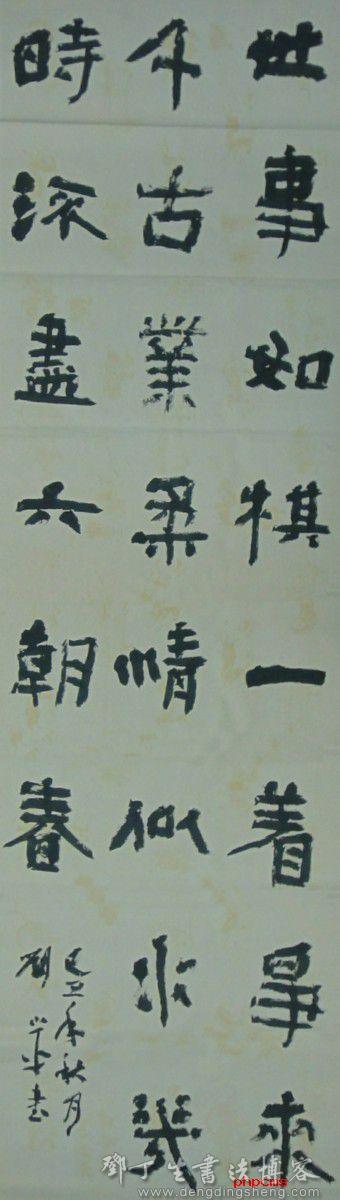 世事如棋一着爭來
千古業柔情似水幾
時流盡六朝春
己丑年秋月
劉 書
鄧丁生書法博客
www.dengdingsheng.com